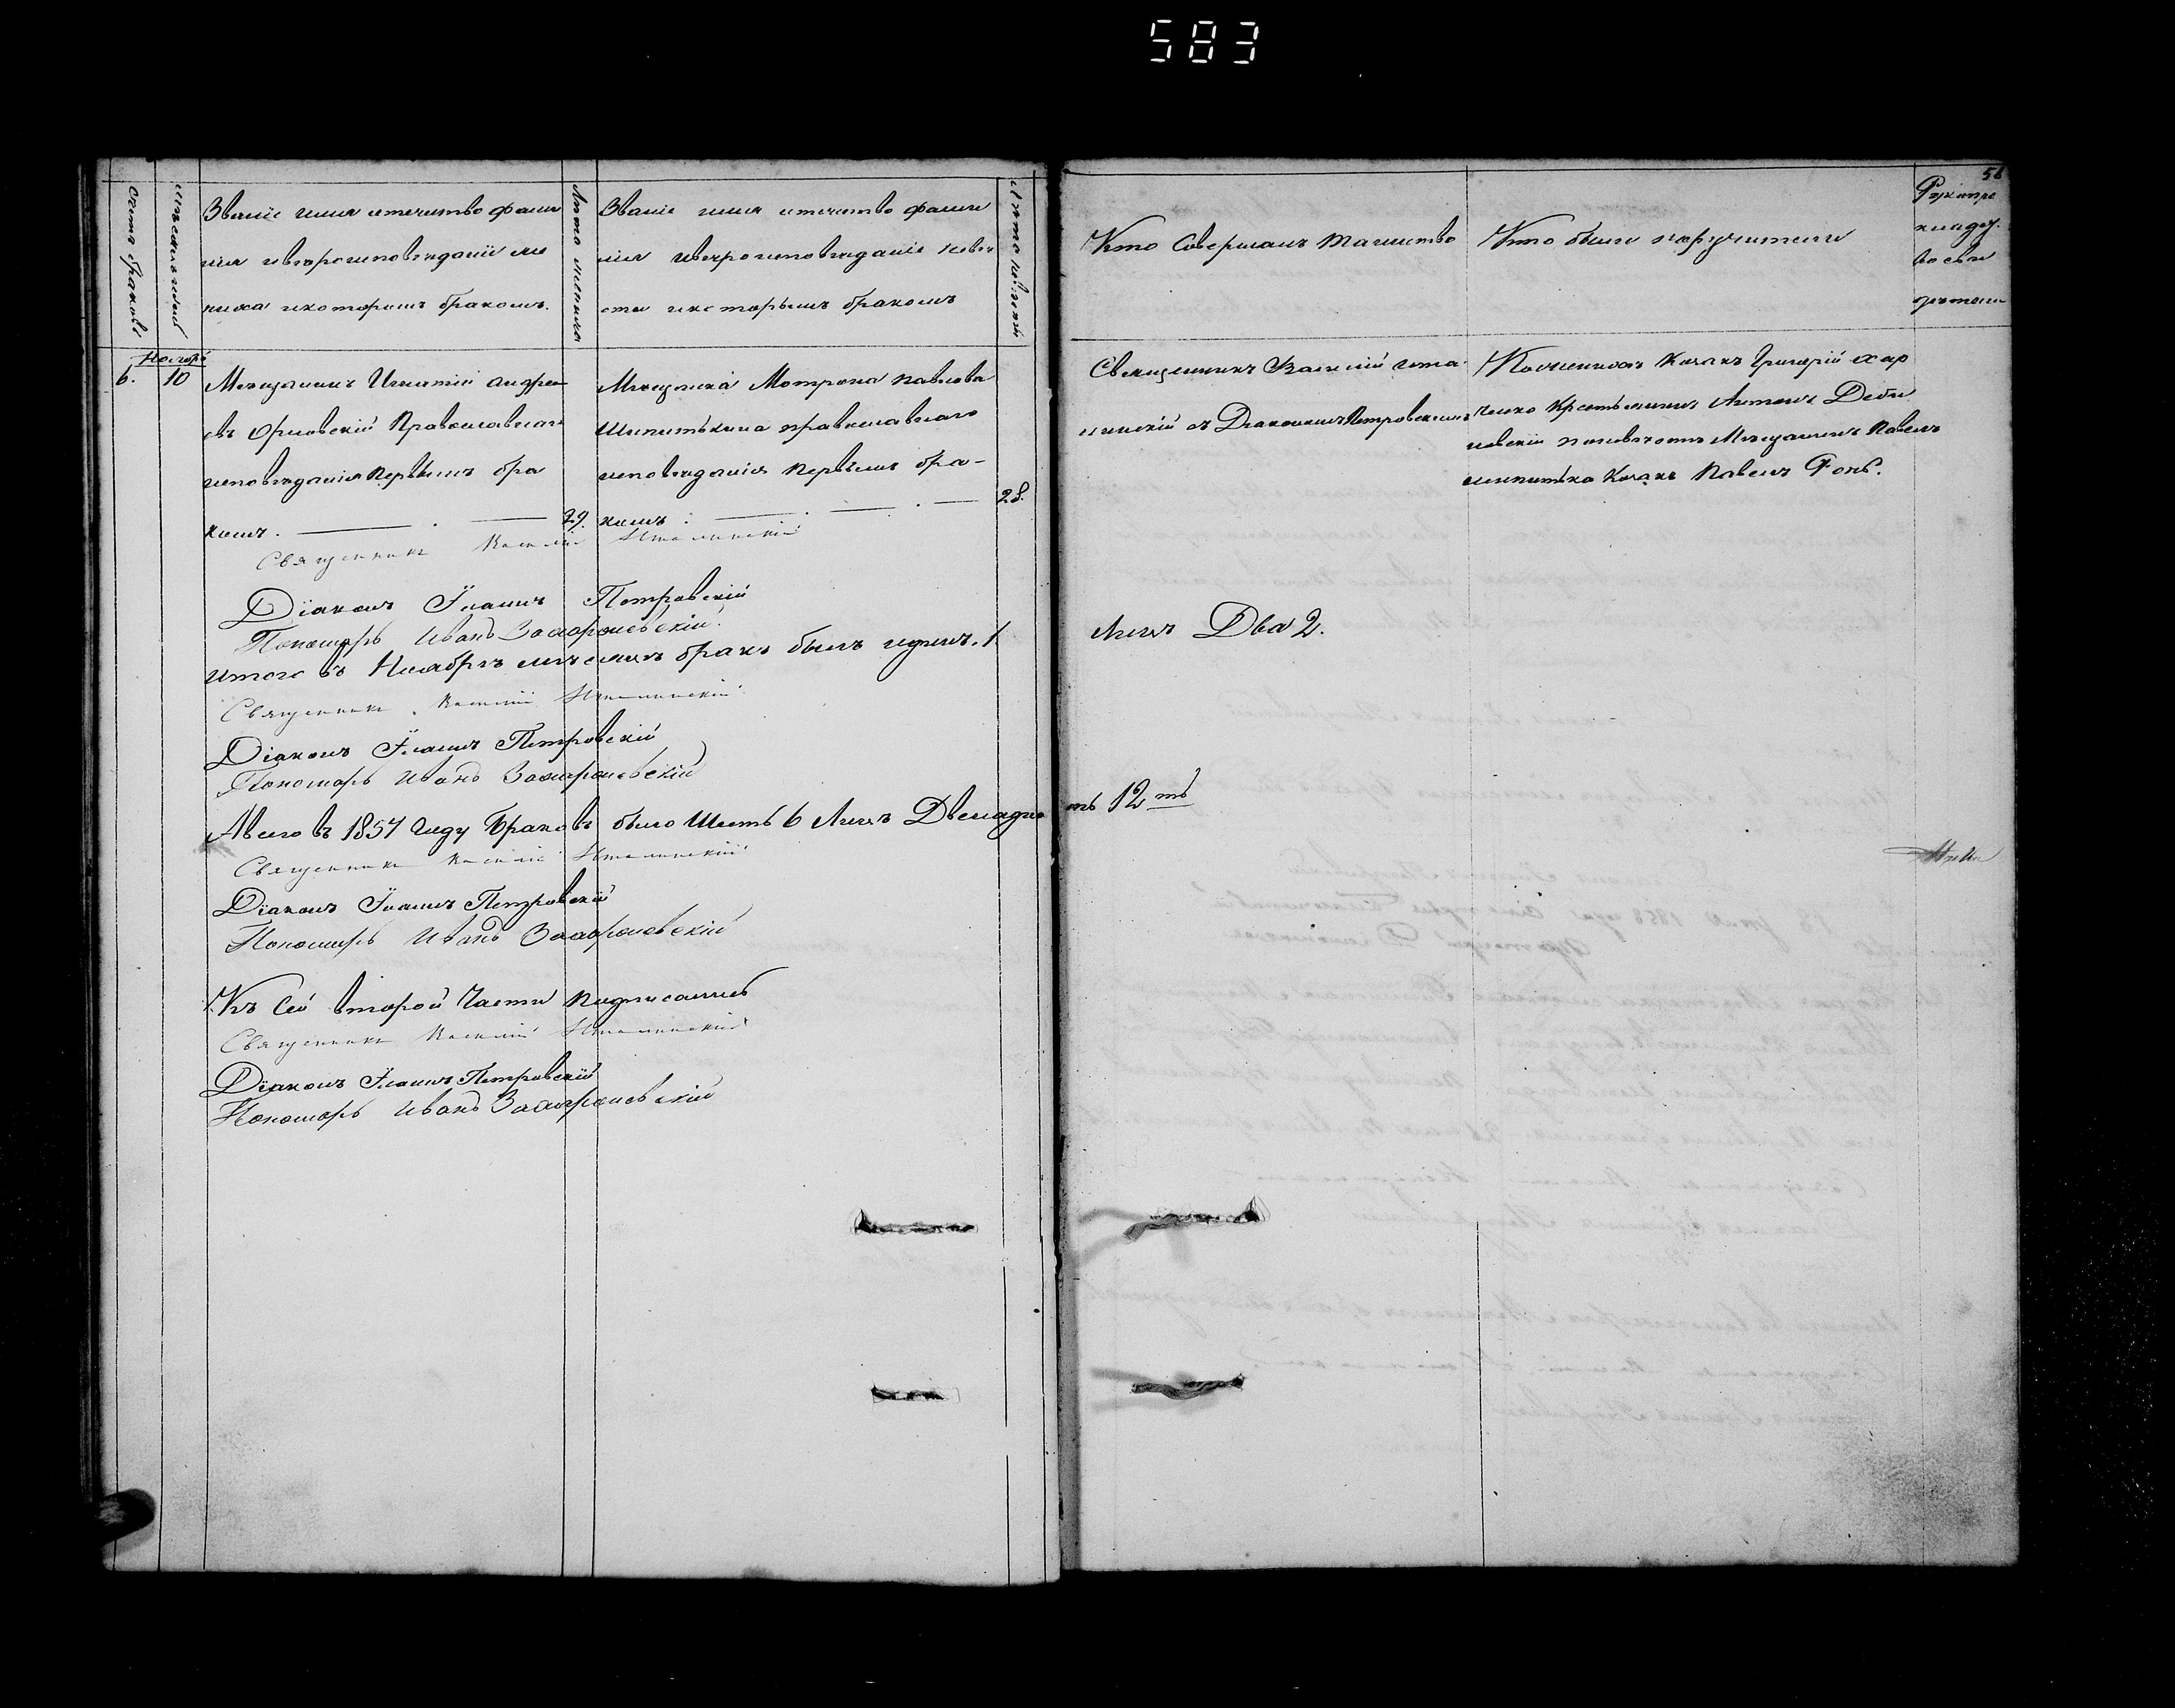 583
56
Счетъ браковъ
Мѣсяцъ и день
Званіе имя отчество фами
лія и вѣроисповѣданіе же
ниха и которымъ бракомъ.
Лѣта жениха
Званіе имя отчество фами
лія и вѣроисповѣданіе невѣ
сты и которымъ бракомъ
Лѣта невѣсты
Кто Совершалъ таинство
Кто были поручители
Рукопри
кладст.
во сви
дѣтели
Ноября
6. 10
Мѣщанинъ Игнатій Андре
евъ Орловскій Православнаго
исповѣданія первымъ бра
комъ. 29.
Мѣщанка Мотрона Павлова
Шпитькина православнаго
исповѣданія первымъ бра-
комъ. 28.
Священникъ Василій Ита
линскій съ Діакономъ Петровскимъ
По женихѣ Козакъ Григорій Хар
ченко Крестьянинъ Антонъ
по невѣстѣ Мѣщанинъ Павелъ
Шпитька Козакъ Павелъ
Священникъ Василій Италинскій
Діаконъ Іоаннъ Петровскій
Пономарь Иванъ
Итого въ Ноябрѣ мѣсяцѣ бракъ былъ одинъ. 1.
Лицъ Два 2.
Священникъ Василій Италинскій
Діаконъ Іоаннъ Петровскій
Пономарь Иванъ
А всего въ 1857 году Браковъ было Шесть 6 Лицъ Двенадца
ть 12ть
Священникъ Василій Италинскій
Діаконъ Іоаннъ Петровскій
Пономарь Иванъ
Къ Сей второй Части подписались
Священникъ Василій Италинскій
Діаконъ Іоаннъ Петровскій
Пономарь Иванъ